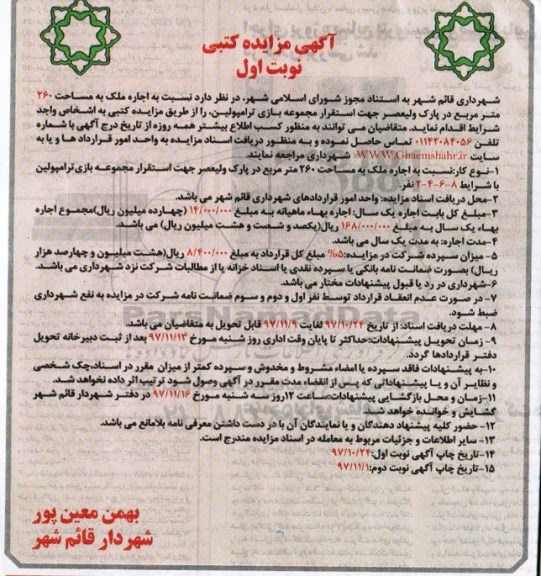 آگهی مزایده کتبی
نوبت اول
شهرداری قائم شهر به استناد مجوز شورای اسلامی شهر، در نظر دارد نسبت به اجاره ملک به مساحت ۲۶۰
متر مربع در پارک ولیعصر جهت استقرار مجموعه بازی ترامپولین، را از طریق مزایده کتبی به اشخاص واجد
شرایط اقدام نماید. متقاضیان می توانند به منظور کسب اطلاع بیشتر همه روزه از تاریخ درج آگهی با شماره
تلفن ۰۱۱۴۲۰۸۴۰۵۶ تماس حاصل نموده و به منظور دریافت اسناد مزایده به واحد امور قرارداد ها و یا به
سایت WWW.Ghaemshahr.ir شهرداری مراجعه نمایند.
۱-نوع کار:نسبت به اجاره ملک به مساحت ۲۶۰ متر مربع در پارک ولیعصر جهت استقرار مجموعه بازی ترامپولین
با شرایط ۸-۶-۴-۲ نفر.
۲-محل دریافت اسناد مزایده: واحد امور قراردادهای شهرداری قائم شهر می باشد.
۳-مبلغ کل بابت اجاره یک سال: اجاره بهاء ماهیانه به مبلغ ۱۴/۰۰۰/۰۰۰ (چهارده میلیون ریال)مجموع اجاره
بهاء یک سال به مبلغ ۱۶۸/۰۰۰/۰۰۰ ریال(یکصد و شصت و هشت میلیون ریال) می باشد.
۴-مدت اجاره: به مدت یک سال می باشد.
۵- میزان سپرده شرکت در مزایده:۵% مبلغ کل قرارداد به مبلغ ۸/۴۰۰/۰۰۰ ریال(هشت میلیون و چهارصد هزار
ریال) بصورت ضمانت نامه بانکی یا سپرده نقدی یا اسناد خزانه یا از مطالبات شرکت نزد شهرداری می باشد.
۶-شهرداری در رد یا قبول پیشنهادات مختار می باشد.
۷- در صورت عدم انعقاد قرارداد توسط نفر اول و دوم و سوم ضمانت نامه شرکت در مزایده به نفع شهرداری
ضبط شود.
۸- مهلت دریافت اسناد: از تاریخ ۹۷/۱۰/۲۴ لغایت ۹۷/۱۱/۹ قابل تحویل به متقاضیان می باشد.
۹- زمان تحویل پیشنهادات:حداکثر تا پایان وقت اداری روز شنبه مورخ ۹۷/۱۱/۱۳ بعد از ثبت دبیرخانه تحویل
دفتر قراردادها گردد.
۱۰-به پیشنهادات فاقد سپرده یا امضاء مشروط و مخدوش و سپرده کمتر از میزان مقرر در اسناد،چک شخصی
و نظایر آن و یا پیشنهاداتی که پس از انقضاء مدت مقرر در آگهی وصول شود ترتیب اثر داده نخواهد شد.
۱۱-زمان و محل بازگشایی پیشنهادات:ساعت ۱۲روز سه شنبه مورخ ۹۷/۱۱/۱۶ در دفتر شهردار قائم شهر
گشایش و خوانده خواهد شد.
۱۲- حضور کلیه پیشنهاد دهندگان و یا نمایندگان آن با در دست داشتن معرفی نامه بلامانع می باشد.
۱۳- سایر اطلاعات و جزئیات مربوط به معامله در اسناد مزایده مندرج است.
۱۴-تاریخ چاپ آگهی نوبت اول:۹۷/۱۰/۲۴
۱۵-تاریخ چاپ آگهی نوبت دوم:۹۷/۱۱/۱
بهمن معین پور
شهردار قائم شهر
ParsNamadData